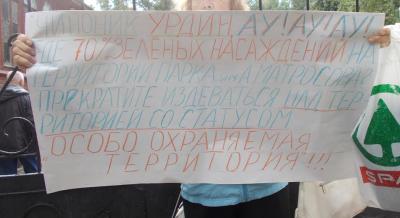 ЧИНОВНИК УРДИН, АУ! АУ! АУ!
ГДЕ 70% ЗЕЛЁНЫХ НАСАЖДЕНИЙ НА
ТЕРРИТОРИИ ПАРКА им. А. МАТРОСОВА?
ПРЕКРАТИТЕ ИЗДЕВАТЬСЯ НАД ТЕР-
РИТОРИЕЙ СО СТАТУСОМ
"ОСОБО ОХРАНЯЕМАЯ
ТЕРРИТОРИЯ"!!!
SPA